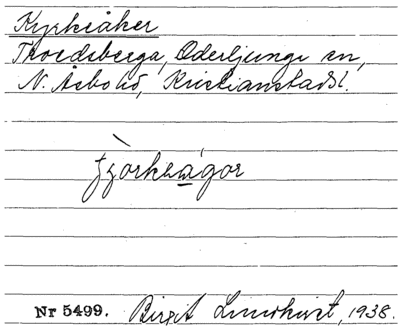 Kyrkåker
Thordsberga, Oderljunga sn,
N. Åsbo hd, Kristianstads l.
Nr 5499. Birgit Lundkvist, 1938.